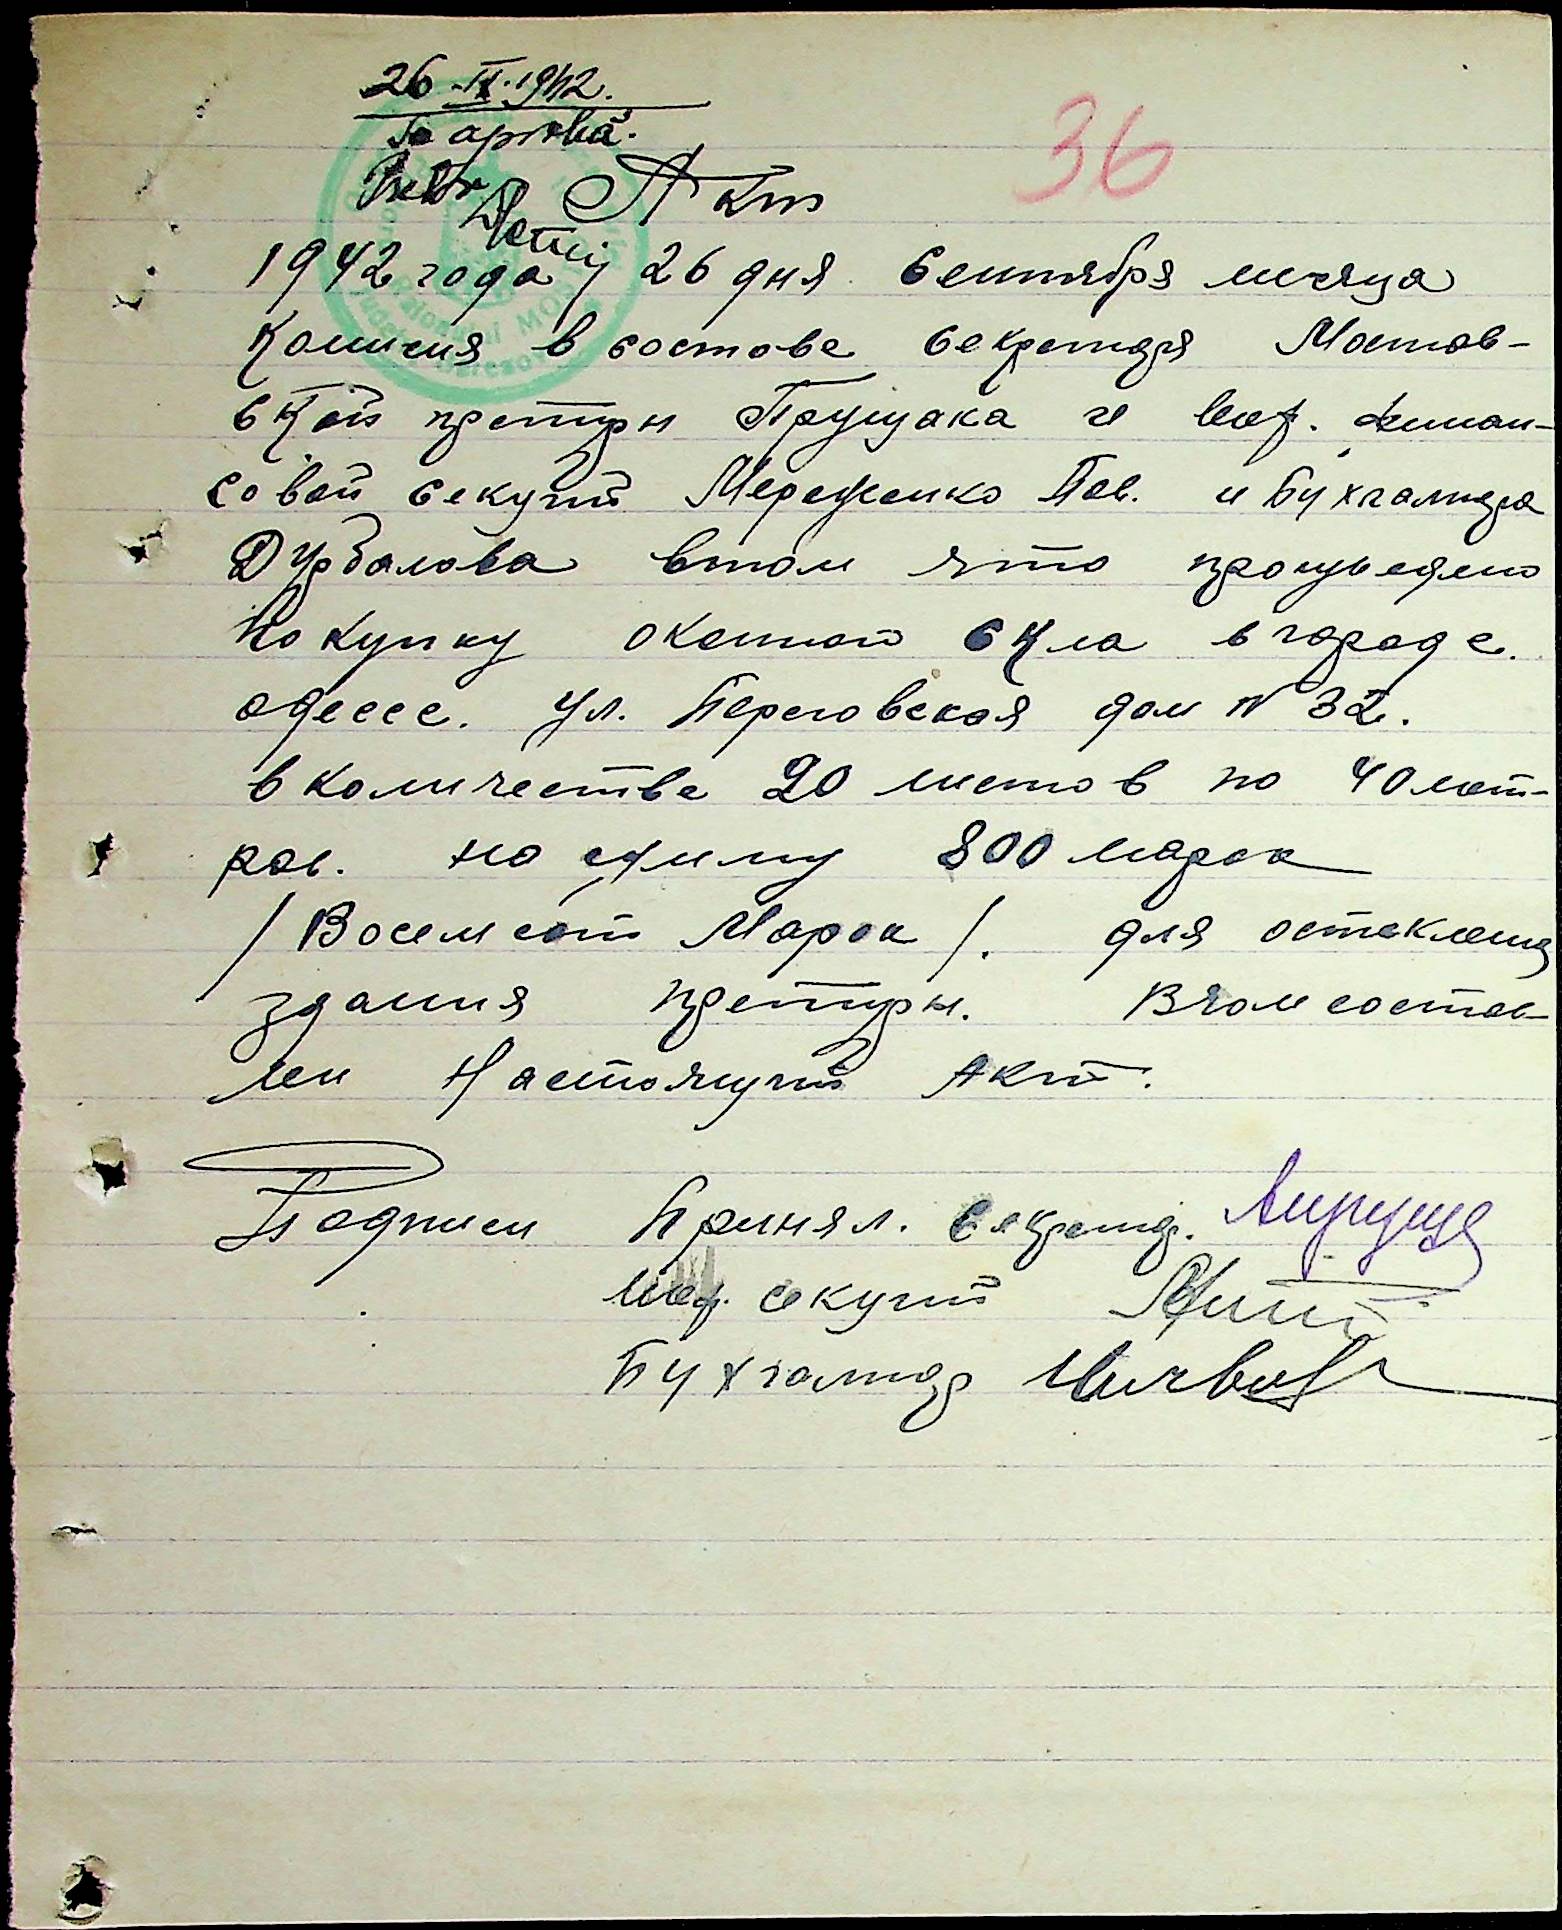 26-IX-1942.
Se aprobă.
36
Акт
1942 года 26 дня Сентября месяца
Комисия в составе секретаря Мостов-
ской претуры Прущака и шеф. финан-
совой секций Мереженко Пав. и Бухгалтера
Дурбалова втом что произведено
покупку оконной скла в городе.
одессе. ул. Береговская дом N 32.
в количестве 20 листов по 40 мет-
ров. на сумму 800 марок
/ Восемсот Марок /. для остекления
здания претуры. Вчом состав-
лен Настоящий Акт.
Подписи Принял. Секретар.
Шеф. секций
Бухгалтер